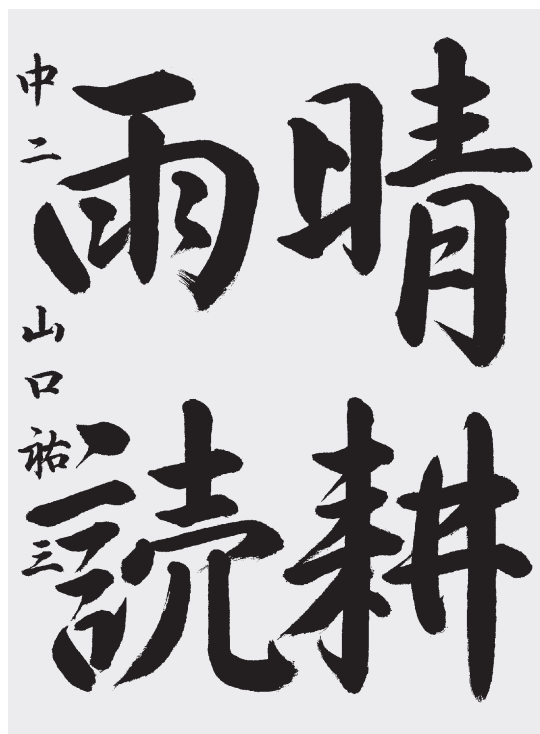 晴耕
雨読
中二 山口祐三